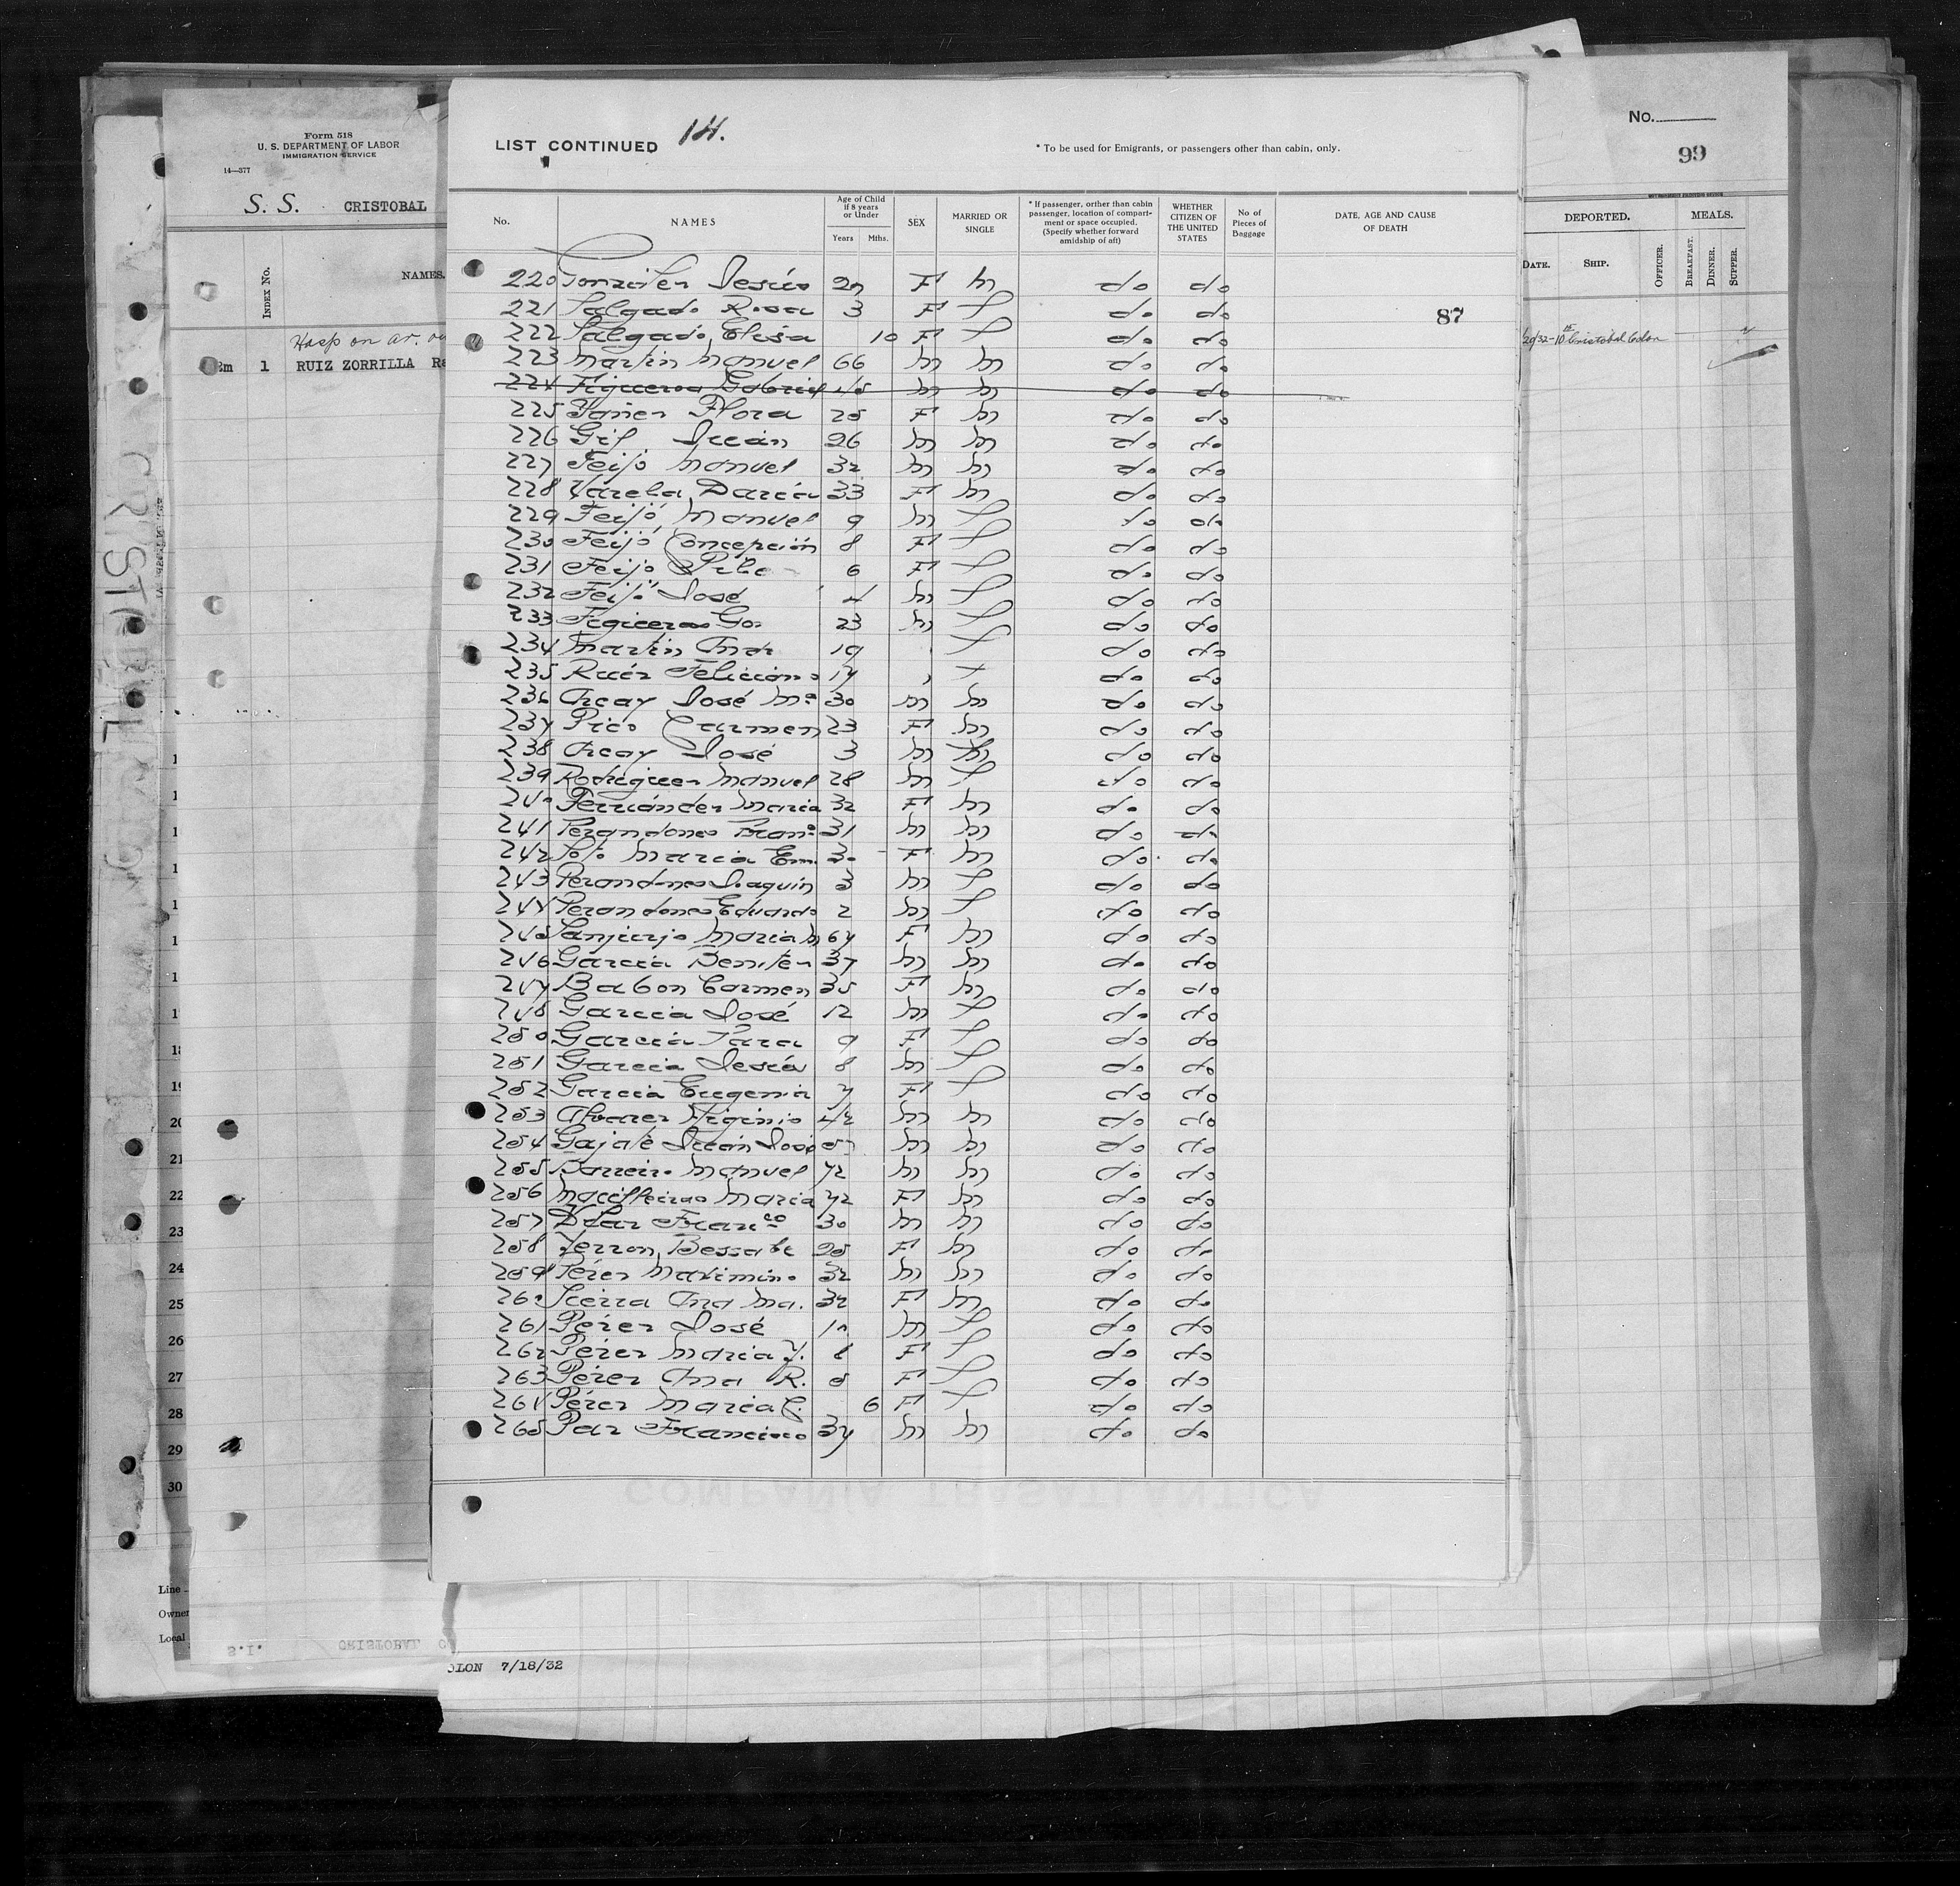 Form 518
U. S. DEPARTMENT OF LABOR
IMMIGRATION SERVICE
14—377
S. S. CRISTOBAL
INDEX No.
NAMES.
Hosp on ar.
1 RUIZ ZORRILLA
LIST CONTINUED 14.
* To be used for Emigrants, or passengers other than cabin, only.
No.
99
87
No. NAMES Age of Child If 8 years or Under Years Mths. SEX MARRIED OR SINGLE * If passenger, orther than cabin passenger, location of compartment or space occupied. (Specify whether forward amidship of aft) WHETHER CITIZEN OF THE UNITED STATES No of Pieces of Baggage DATE, AGE AND CAUSE OF DEATH
DEPORTED. MEALS.
DATE. SHIP. OFFICER. BREAKFAST. DINNER. SUPPER.
Cristobal Colon
220 Jesús F m do do
221 Salgado Rosa 3 F S do do
222 Salgado Elisa 10 F S do do
223 Martin Manuel 66 m m do do
224 Figueroa Gabriel 45 m m do do
225 Flora 25 F m do do
226 Gil Juán 26 m m do do
227 Feijó Manuel 32 m m do do
228 Varela Daría 33 F m do do
229 Feijó Manuel 9 m S do do
230 Feijó Concepción 8 F S do do
231 Feijó 6 F S do do
232 Feijó José 4 m S do do
233 Figueroa 23 m S do do
234 Martin 19 S do do
235 Ruíz Feliciano 17 do do
236 José Mª 30 m m do do
237 Pico Carmen 23 F m do do
238 José 3 m do do
239 Rodriguez Manuel 28 m S do do
240 Fernández Maria 32 F m do do
241 Perandones Franº 31 m m do do
242 Soto Maria Em. 30 F m do do
243 Perandones Joaquín 3 m S do do
244 Perandones Eduardo 2 m S do do
245 Sanjurjo Maria M 67 F m do do
246 Garcia Benitez 37 m m do do
247 Babon Carmen 35 F m do do
248 Garcia José 12 m S do do
250 Garcia Sara 9 F S do do
251 Garcia Jesús 8 m S do do
252 Garcia Eugenia 7 F S do do
253 Alvarez Higinio 42 m m do do
254 Gajate Juán José m m do do
255 Barreiro Manuel 72 m m do do
256 Maria 72 F m do do
257 Díaz Franco 30 m m do do
258 Terron 25 F m do do
259 Pérez Maximino 32 m m do do
260 Sierra Ana Ma. 32 F m do do
261 Pérez José 10 m S do do
262 Pérez Maria Y. F S do do
263 Pérez Ana R. 5 F S do do
264 Pérez Maria C. 6 F S do do
265 Paz Francisco 37 m m do do
COMPAÑIA TRASATLANTICA
19
20
21
22
23
24
25
26
27
28
29
30
Line
Owner
Local
S.I. CRISTOBAL
OLON 7/18/32